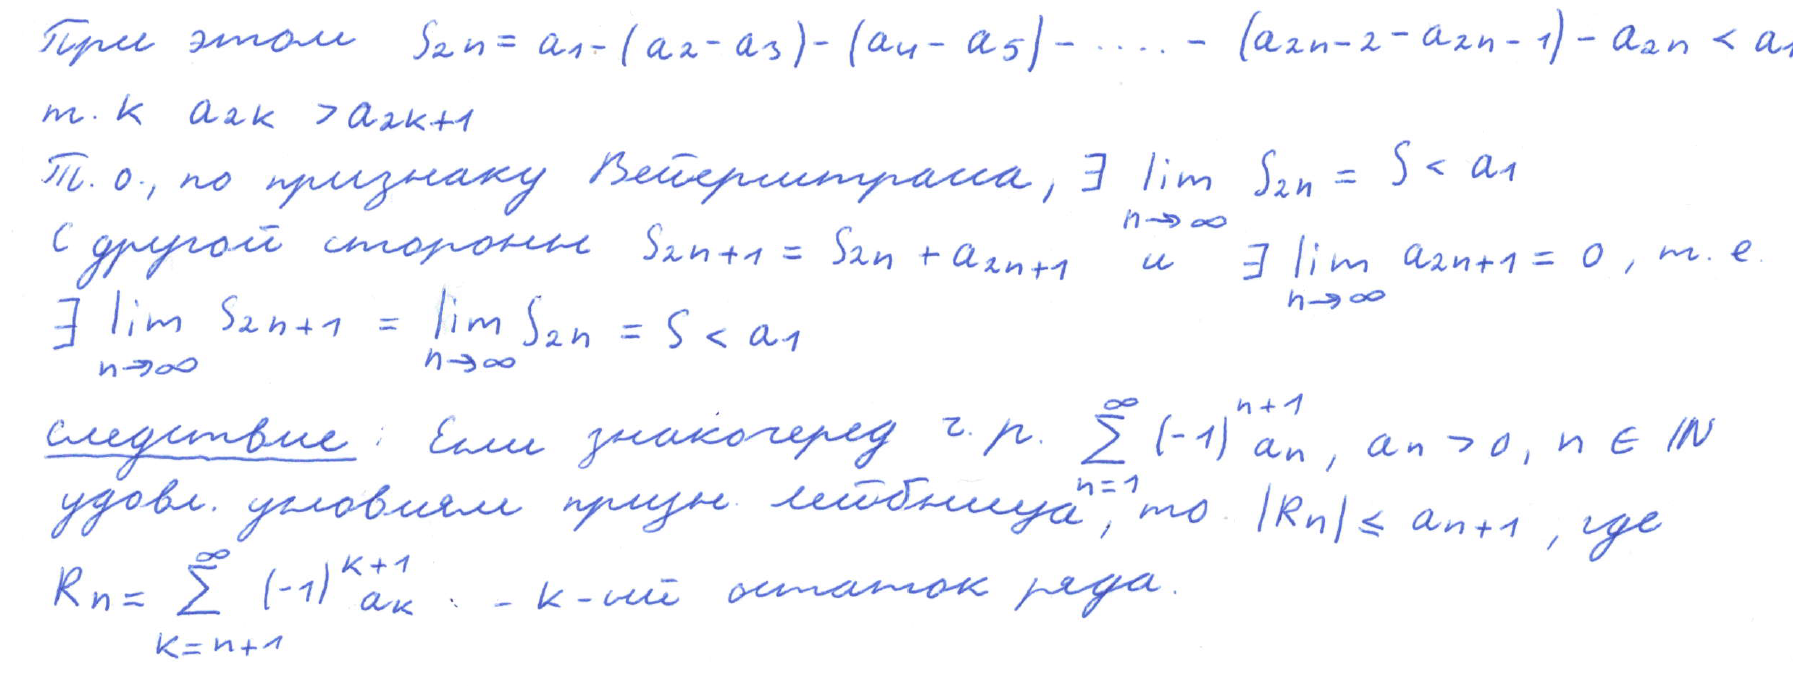 При этом S₂ₙ = a₁ - (a₂ - a₃) - (a₄ - a₅) - ..... - (a₂ₙ₋₂ - a₂ₙ₋₁) - a₂ₙ < a₁
т. к a₂ₖ > a₂ₖ₊₁
Т. о., по признаку Вейерштрасса, ∃ lim_{n→∞} S₂ₙ = S < a₁
С другой стороны S₂ₙ₊₁ = S₂ₙ + a₂ₙ₊₁ и ∃ lim_{n→∞} a₂ₙ₊₁ = 0, т. е.
∃ lim_{n→∞} S₂ₙ₊₁ = lim_{n→∞} S₂ₙ = S < a₁
следствие: Если знакочеред ч. р. ∑_{n=1}^{∞} (-1)^{n+1} aₙ, aₙ > 0, n ∈ ℕ
удовл. условиям призн. лейбница, то |Rₙ| ≤ aₙ₊₁, где
Rₙ = ∑_{k=n+1}^{∞} (-1)^{k+1} aₖ - k-ый остаток ряда.